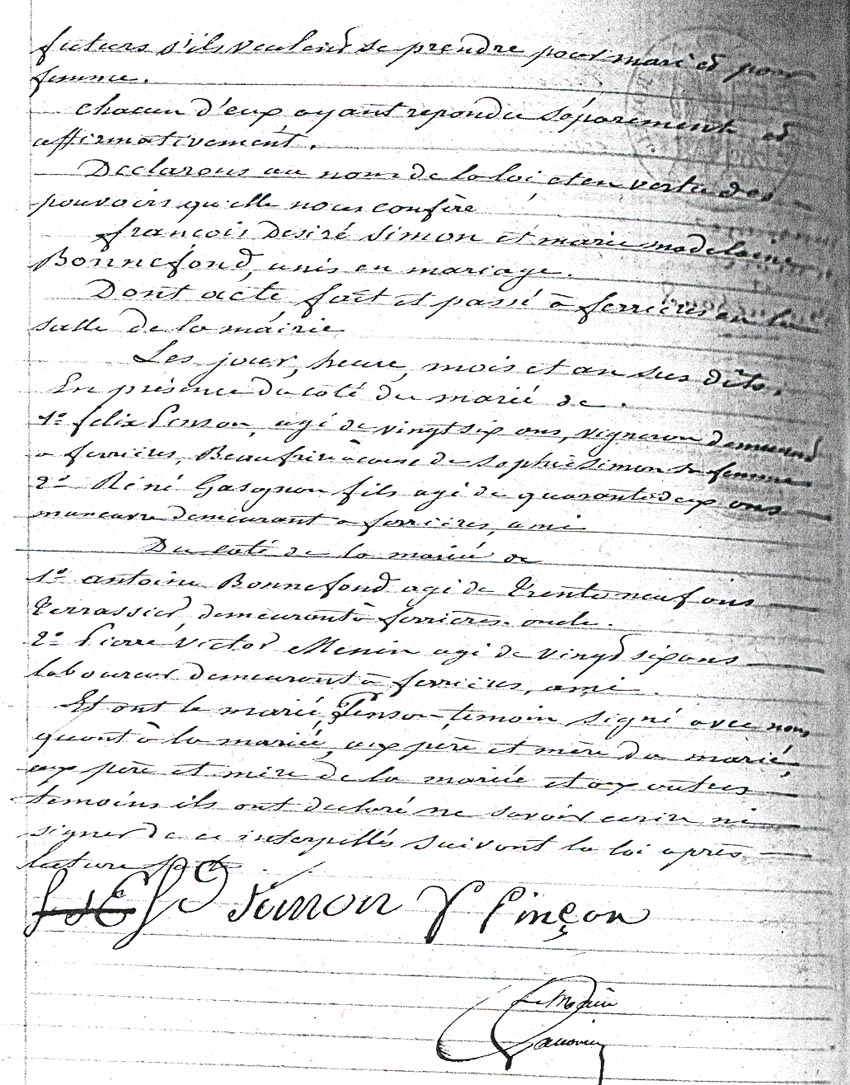 futurs s'ils veulent se prendre pour mari et pour
femme.
chacun d'eux ayant repondu séparement et
affirmativement.
Declarons au nom de la loi et en vertu des
pouvoirs qu'elle nous confère
françois Desiré Simon et marie madelaine
Bonnefond, unis en mariage.
Dont acte fait et passé à ferrieres en la
salle de la mairie
Les jour, heure, mois et an sus dits.
En présence du coté du marié de
1º felix Penson, agé de vingt six ans, vigneron demeurant
a ferrières, Beaufrère à cause de Sophie Simon sa femme
2º Réné Gasgnon fils agé de quarante deux ans
maneuvre demeurant a ferrières, ami
Du coté de la mariée de
1º antoine Bonnefond agé de Trente neuf ans
Terrassier, demeurant à ferrières oncle.
2º Pierre Victor Menin agé de vingt six ans
laboureur demeurant à ferrières, ami.
Et ont le marié, Penson, temoin signé avec nous
quant à la mariée, aux père et mère du marié
aux père et mère de la mariée et aux autres
temoins ils ont declaré ne savoir ecrire ni
signer de ce interpellés suivant la loi après
lecture faite.
Simon Pinçon